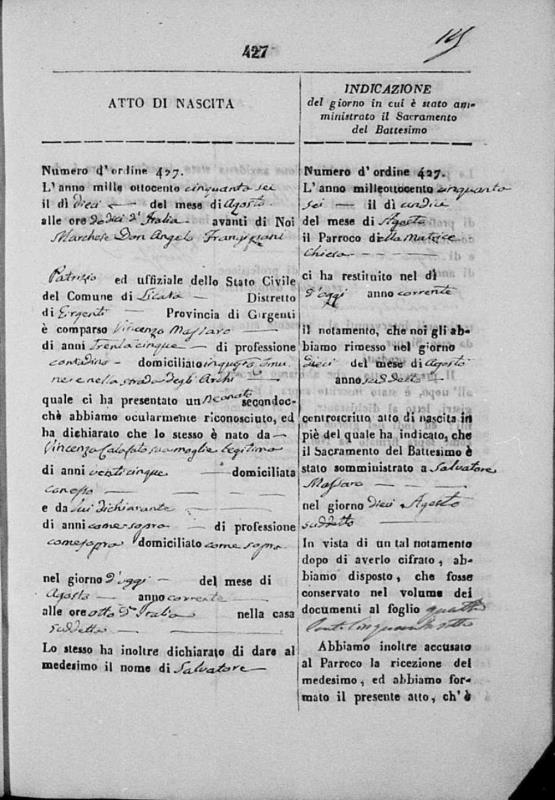 427
ATTO DI NASCITA
Numero d'ordine 427.
L'anno mille ottocento cinquanta sei
il dì dieci del mese di Agosto
alle ore dodici d'Italia avanti di Noi
Marchese Don Angelo Frangipani
Patrizio ed uffiziale dello Stato Civile
del Comune di Licata Distretto
di Girgenti Provincia di Girgenti
è comparso Vincenzo Massaro
di anni Trentacinque di professione
contadino domiciliato in questa Comu
ne e nella strada degli Archi
quale ci ha presentato un neonato secondoc-
chè abbiamo ocularmente riconosciuto, ed
ha dichiarato che lo stesso è nato da
Vincenza sua moglie legitima
di anni venticinque domiciliata
con esso
e da lui dichiarante
di anni come sopra di professione
come sopra domiciliato come sopra
nel giorno d'oggi del mese di
Agosto anno corrente
alle ore otto d'Italia nella casa
suddetta
Lo stesso ha inoltre dichiarato di dare al
medesimo il nome di Salvatore
INDICAZIONE
del giorno in cui è stato am-
ministrato il Sacramento
del Battesimo
Numero d'ordine 427.
L'anno milleottocento cinquanta
sei il dì undici
del mese di Agosto
il Parroco della Matrice
Chiesa
ci ha restituito nel dì
d'oggi anno corrente
il notamento, che noi gli ab-
biamo rimesso nel giorno
dieci del mese di Agosto
anno suddetto
centroscritto atto di nascita in
piè del quale ha indicato, che
il Sacramento del Battesimo è
stato somministrato a Salvatore
Massaro
nel giorno dieci Agosto
suddetto
In vista di un tal notamento
dopo di averlo cifrato, ab-
biamo disposto, che fosse
conservato nel volume dei
documenti al foglio quattro
Abbiamo inoltre accusato
al Parroco la ricezione del
medesimo, ed abbiamo for-
mato il presente atto, ch'è